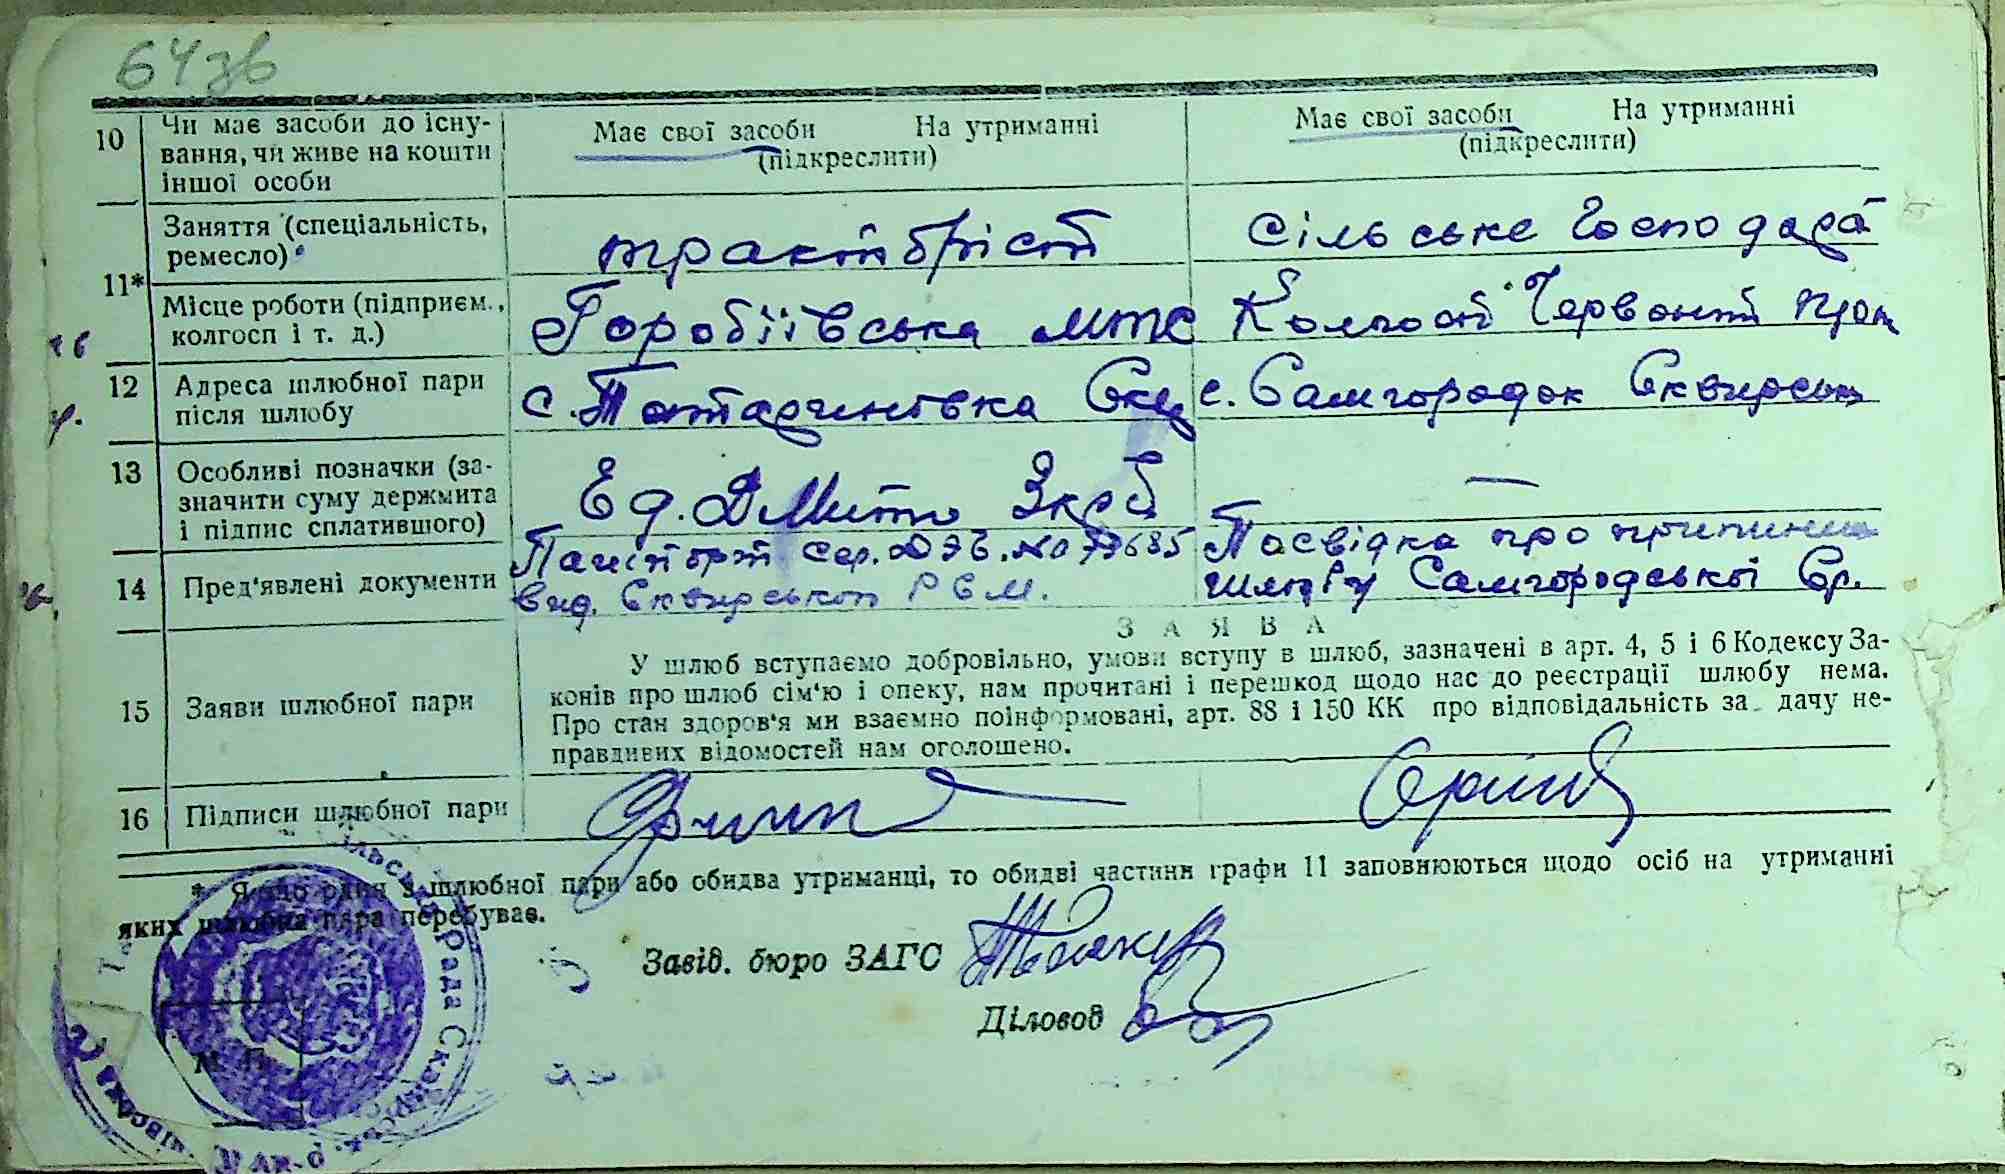 64зв
10 Чи має засоби до існу-
вання, чи живе на кошти
іншої особи
Має свої засоби На утриманні
(підкреслити)
Має свої засоби На утриманні
(підкреслити)
11* Заняття (спеціальність,
ремесло)
тракторіст
сільське господар
Місце роботи (підприєм.,
колгосп і т. д.)
Горобіївська мтс
Колгосп Червоний прап
12 Адреса шлюбної пари
після шлюбу
с. Татариновка Скв
с. Самгородок Сквирськ
13 Особливі позначки (за-
значити суму держмита
і підпис сплатившого)
Ед. Д Мито 3крб
—
14 Пред'явлені документи
Пашпорт сер. № 77685
вид. Сквирськой РВМ.
Посвідка про припинин
шлюбу Самгородської Ср.
З А Я В А
15 Заяви шлюбної пари
У шлюб вступаємо добровільно, умови вступу в шлюб, зазначені в арт. 4, 5 і 6 Кодексу За-
конів про шлюб сім'ю і опеку, нам прочитані і перешкод щодо нас до реєстрації шлюбу нема.
Про стан здоров'я ми взаємно поінформовані, арт. 88 і 150 КК про відповідальність за дачу не-
правдивих відомостей нам оголошено.
16 Підписи шлюбної пари
* Якщо один з шлюбної пари або обидва утриманці, то обидві частини графи 11 заповнюються щодо осіб на утриманні
яких шлюбна пара перебуває.
Завід. бюро ЗАГС
Діловод
М. П.